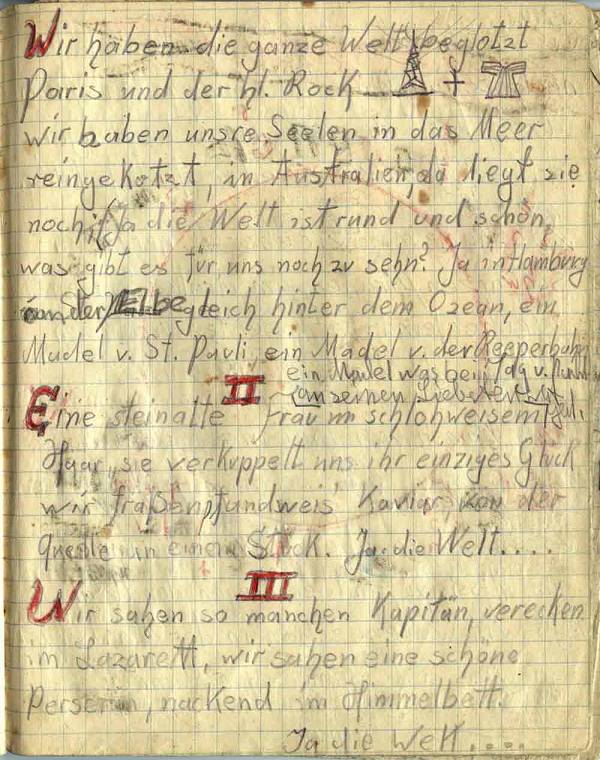 Wir haben die ganze Welt beglotzt
Paris und der hl. Rock
wir haben unsre Seelen in das Meer
reingekotzt, in Australien, da liegt sie
noch. Ja die Welt ist rund und schön,
was gibt es für uns noch zu sehn? Ja in Hamburg
an der Elbe gleich hinter dem Ozean, ein
Madel v. St. Pauli, ein Madel v. der Reeperbahn
ein Madel was bei Tag u. Nacht
an seinen Liebsten
II
Eine steinalte Frau m schlohweisem
Haar, sie verkuppelt uns ihr einziges Glück
wir fraßen pfundweis' Kaviar von der
Quelle an einem Stück. Ja die Welt....
III
Wir sahen so manchen Kapitän, verecken
im Lazarett, wir sahen eine schöne
Perserin, nackend im Himmelbett.
Ja die Welt....